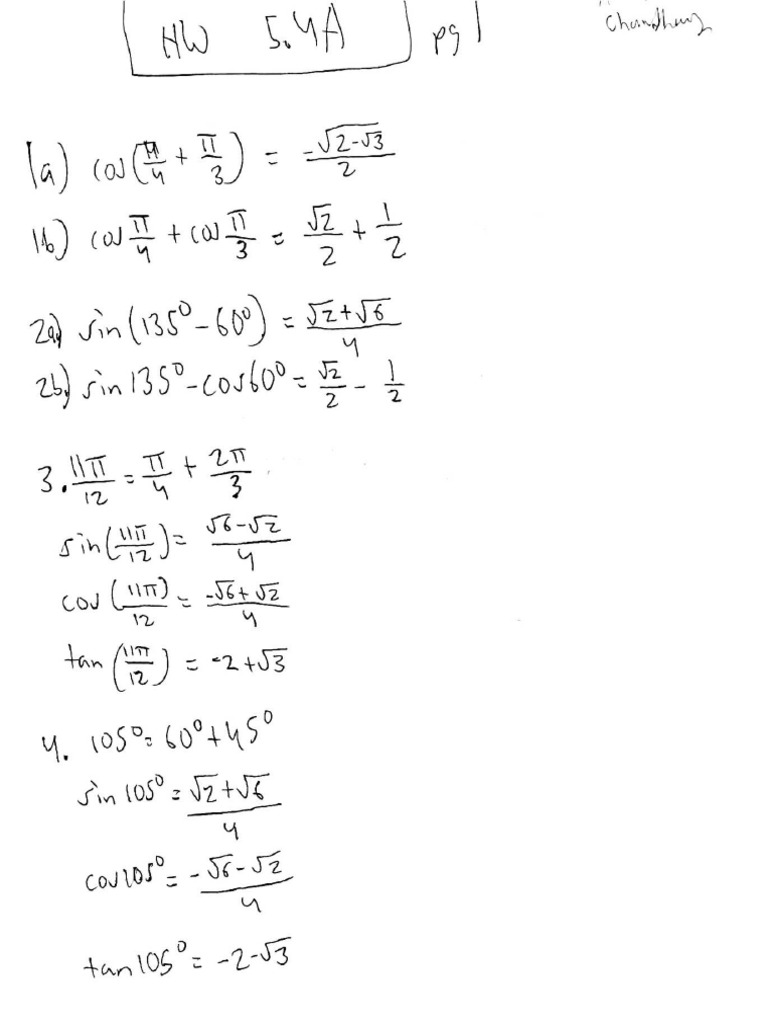 HW 5.4A pg 1
1a) cos(π/4 + π/3) = -√(2-√3)/2
1b) cos π/4 + cos π/3 = √2/2 + 1/2
2a) sin(135° - 60°) = (√2+√6)/4
2b) sin 135° - cos 60° = √2/2 - 1/2
3. 11π/12 = π/4 + 2π/3
sin(11π/12) = (√6-√2)/4
cos(11π/12) = (-√6+√2)/4
tan(11π/12) = -2+√3
4. 105° = 60° + 45°
sin 105° = (√2+√6)/4
cos 105° = -(√6-√2)/4
tan 105° = -2-√3